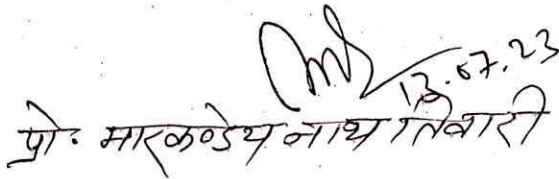 13.07.23
प्रो. मारकण्डेय नाथ तिवारी